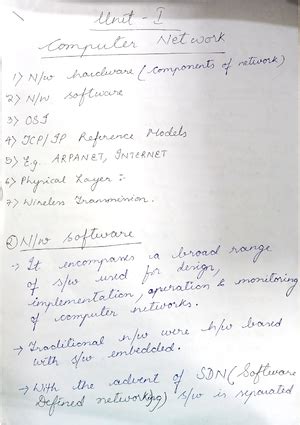 Unit - I
Computer Network
1) N/w hardware (components of network)
2) N/w software
3) OSI
4) TCP/IP Reference Models
5) E.g. ARPANET, INTERNET
6) Physical Layer :-
7) Wireless Transmission.
② N/w software
→ It encompasses a broad range
of s/w used for design,
implementation, operation & monitoring
of computer networks.
→ Traditional n/w were h/w based
with s/w embedded.
→ With the advent of SDN (Software
Defined networking), s/w is separated